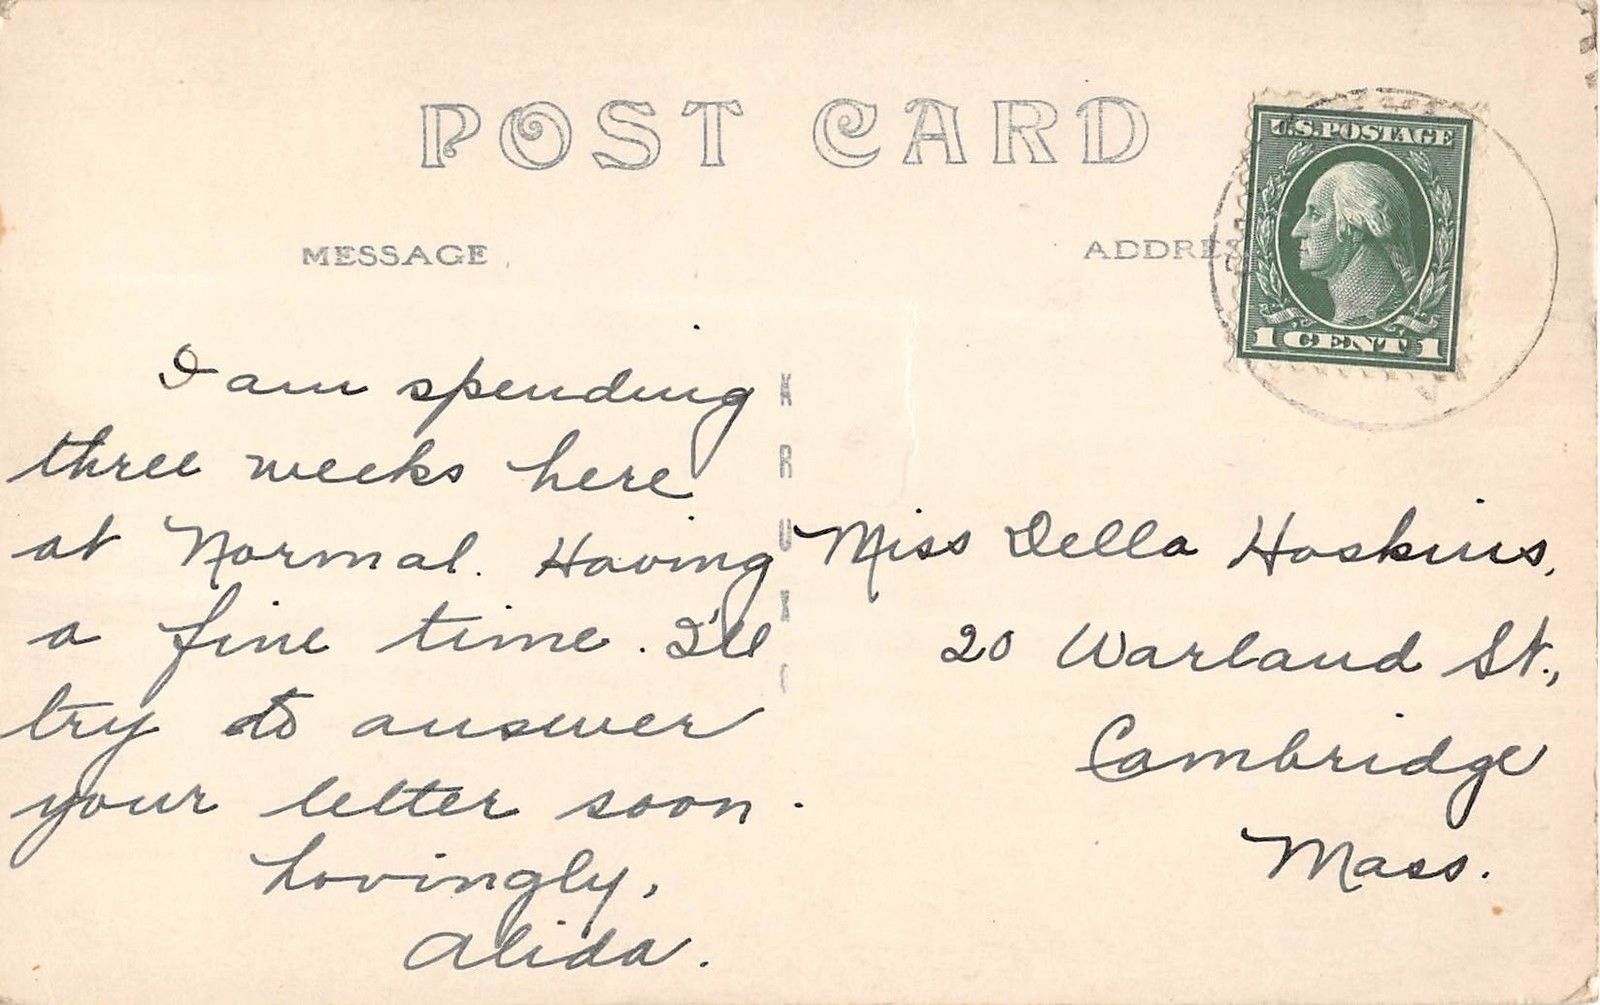 POST CARD
MESSAGE
ADDRES
U.S. POSTAGE
1 CENT 1
I am spending
three weeks here
at Normal. Having
a fine time. I'll
try to answer
your letter soon.
Lovingly,
Alida.
A
R
U
X
C
Miss Della Hoskins,
20 Warland St.,
Cambridge
Mass.